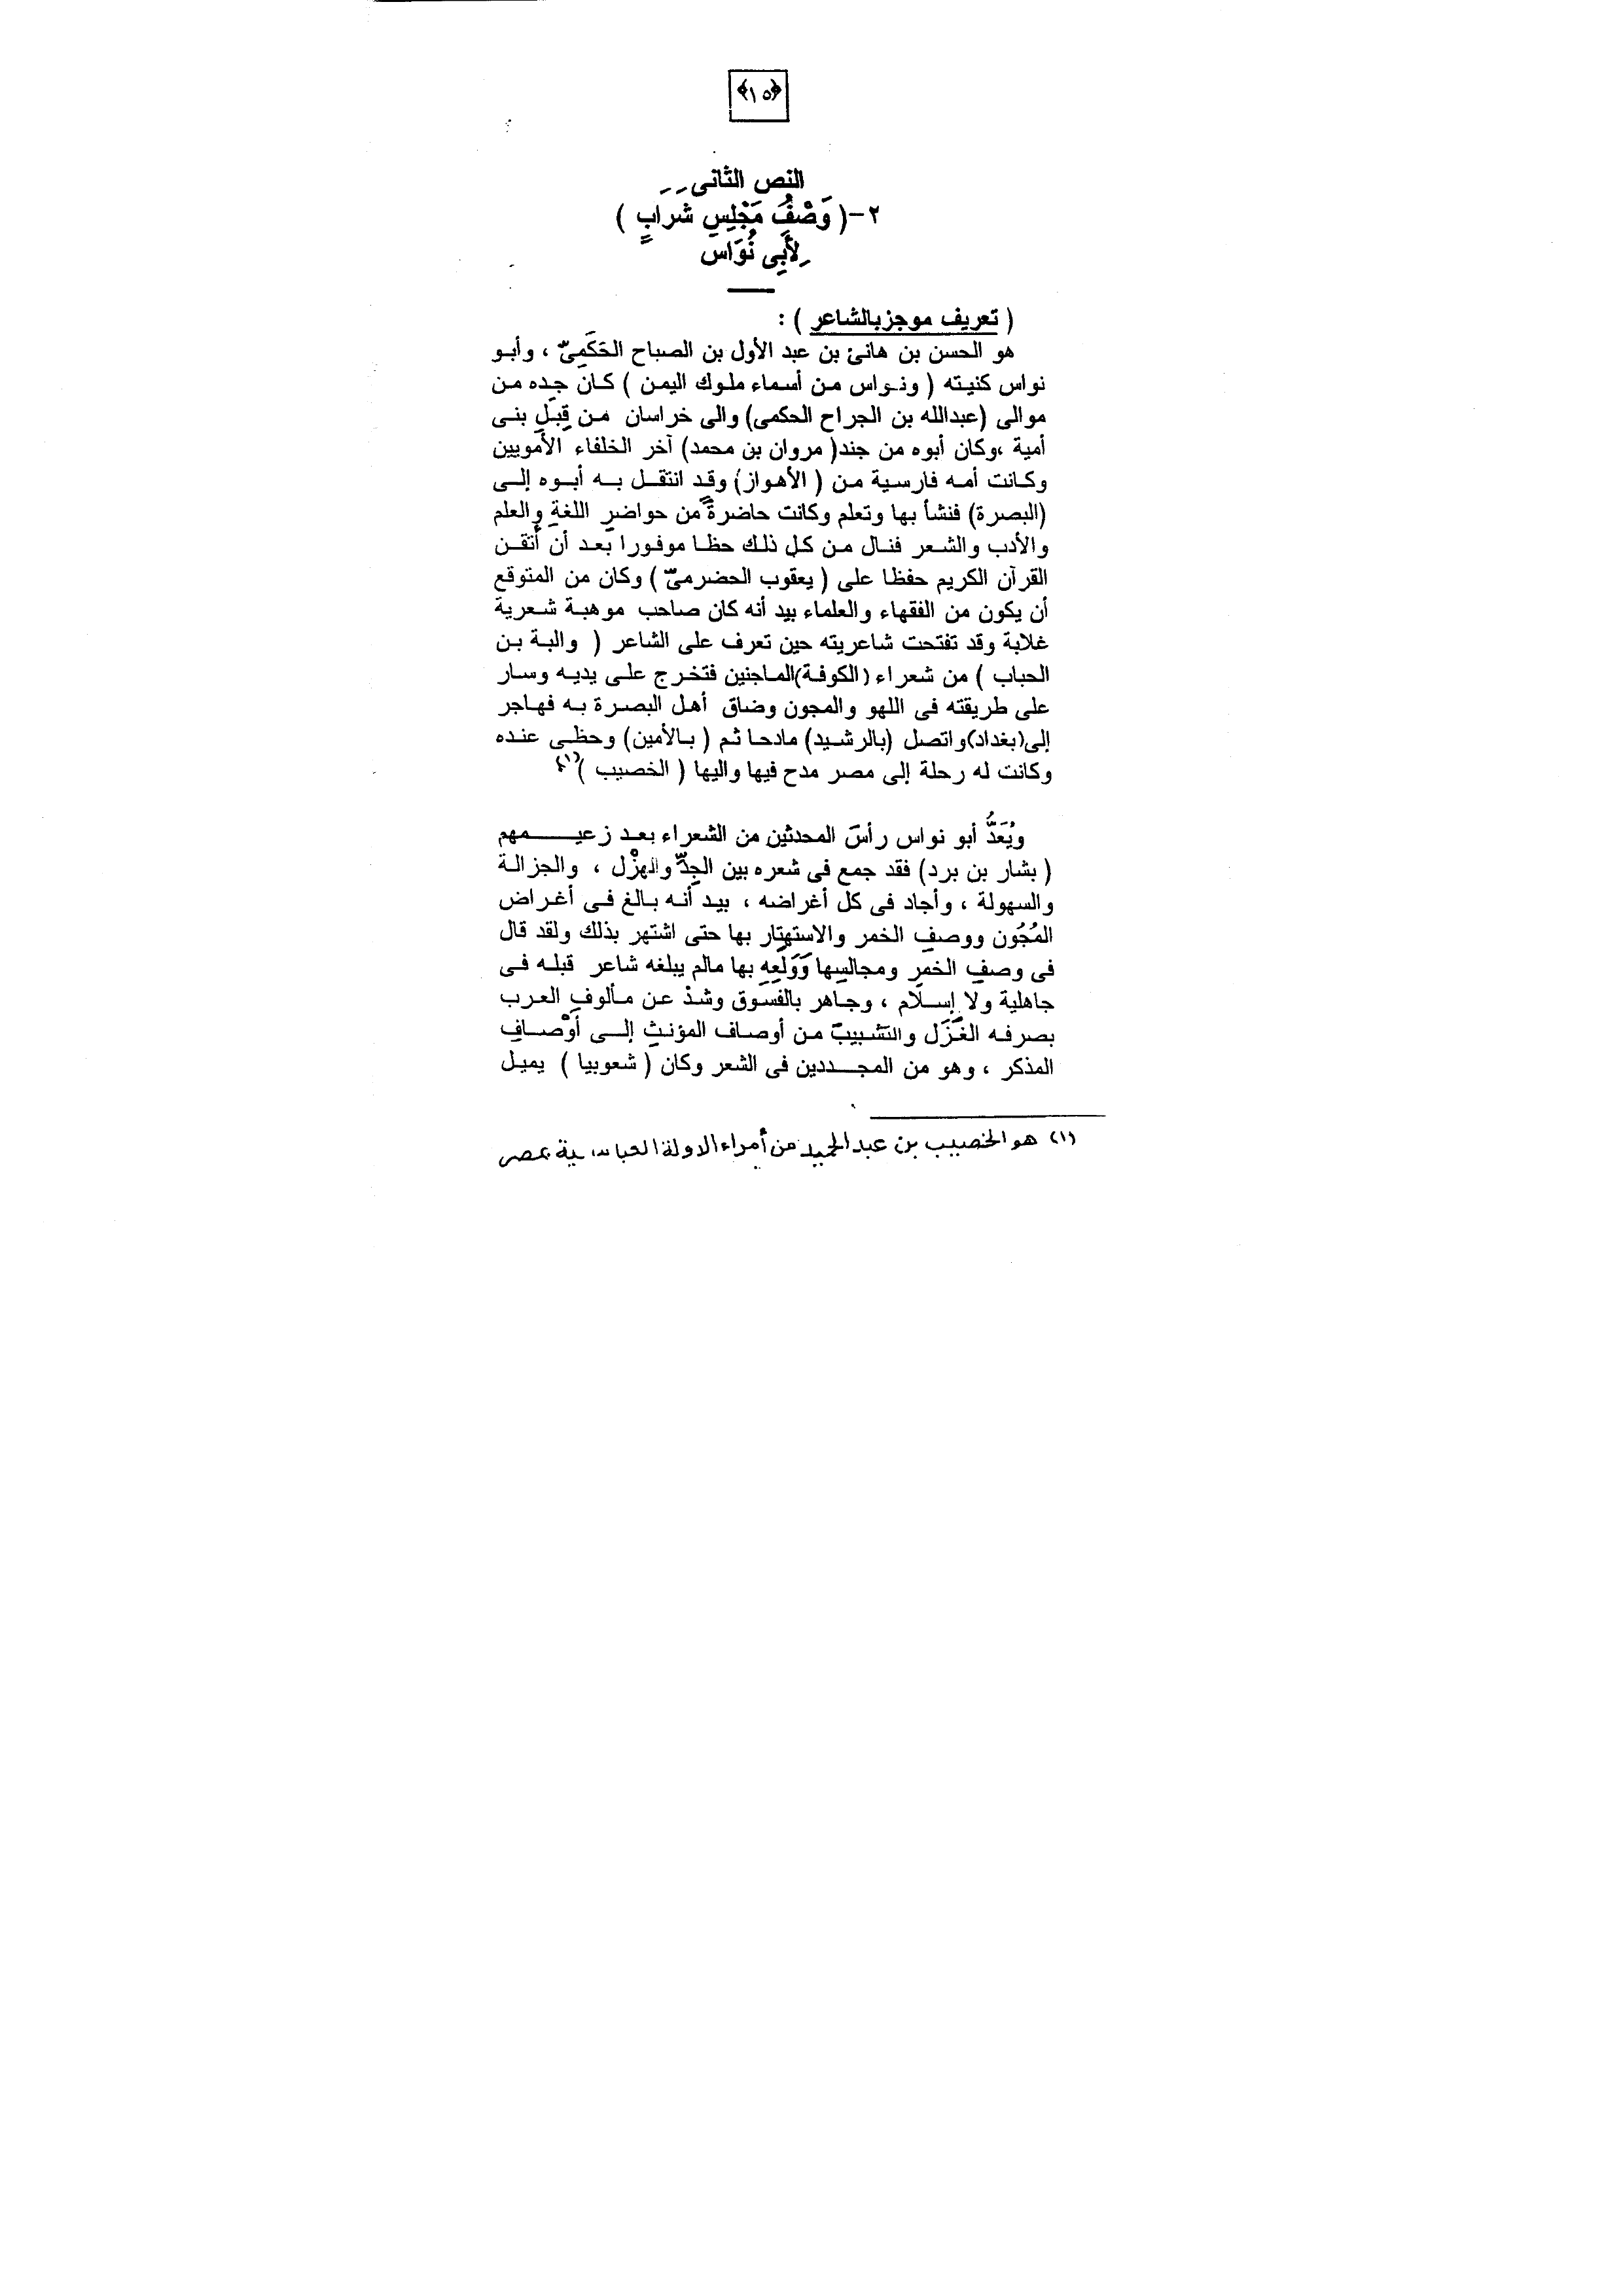 ﴿١٥﴾
النص الثانى
٢-( وَصْفُ مَجْلِسِ شرابٍ )
لِأَبِى نُوَاس
( تعريف موجز بالشاعر ) :
هو الحسن بن هانئ بن عبد الأول بن الصباح الحَكَمِىّ ، وأبو
نواس كنيته ( ونواس من أسماء ملوك اليمن ) كان جده من
موالى (عبدالله بن الجراح الحكمى) والى خراسان من قِبَلِ بنى
أمية ،وكان أبوه من جند( مروان بن محمد) آخر الخلفاء الأمويين
وكانت أمه فارسية من ( الأهواز) وقد انتقل به أبوه إلى
(البصرة) فنشأ بها وتعلم وكانت حاضرةً من حواضرِ اللغةِ والعلم
والأدب والشعر فنال من كل ذلك حظا موفورا بعد أن أتقن
القرآن الكريم حفظا على ( يعقوب الحضرمىّ ) وكان من المتوقع
أن يكون من الفقهاء والعلماء بيد أنه كان صاحب موهبة شعرية
غلابة وقد تفتحت شاعريته حين تعرف على الشاعر ( والبة بن
الحباب ) من شعراء (الكوفة)الماجنين فتخرج على يديه وسار
على طريقته فى اللهو والمجون وضاق أهل البصرة به فهاجر
إلى(بغداد)واتصل (بالرشيد) مادحا ثم ( بالأمين) وحظى عنده
وكانت له رحلة إلى مصر مدح فيها واليها ( الخصيب )(١)
ويُعَدُّ أبو نواس رأسَ المحدثين من الشعراء بعد زعيـــــمهم
( بشار بن برد) فقد جمع فى شعره بين الجِدِّ والهزْل ، والجزالة
والسهولة ، وأجاد فى كل أغراضه ، بيد أنه بالغ فى أغراض
المُجُون ووصفِ الخمر والاستهتِار بها حتى اشتهر بذلك ولقد قال
فى وصفِ الخمرِ ومجالسِها وَوَلَعِهِ بها مالم يبلغه شاعر قبله فى
جاهلية ولا إسلام ، وجاهر بالفسوق وشذ عن مألوفِ العرب
بصرفه الغَزَل والتشبيبَ من أوصاف المؤنثِ إلى أوْصافِ
المذكر ، وهو من المجــددين فى الشعر وكان ( شعوبيا ) يميل
(١) هو الخصيب بن عبد الحميد من أمراء الدولة العباسية بمصر